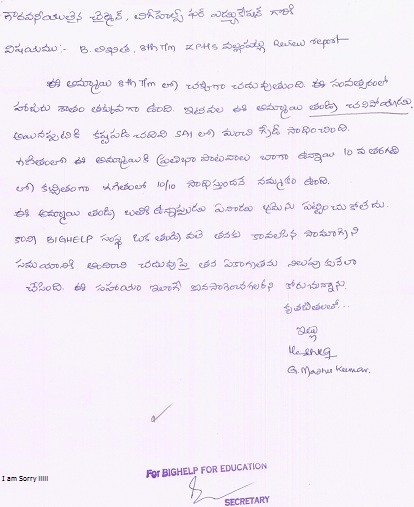 గౌరవనీయులైన ఛైర్మన్, బిగ్‌హెల్ప్ ఫర్ ఎడ్యుకేషన్ గారికి
విషయము:- B. లిఖిత, 8th T/m ZPHS report
ఈ అమ్మాయి 8th T/m లో చక్కగా చదువుతుంది. ఈ సంవత్సరంలో
హాజరు శాతం తక్కువగా ఉంది. ఇటీవల ఈ అమ్మాయి తండ్రి చనిపోయాడు.
అయినప్పటికీ కష్టపడి చదివి SA1 లో మంచి గ్రేడ్ సాధించింది.
గణితంలో ఈ అమ్మాయికి ప్రతిభా పాటవాలు బాగా ఉన్నాయి 10 వ తరగతి
లో కచ్చితంగా గణితంలో 10/10 సాధిస్తుందనే నమ్మకం ఉంది.
ఈ అమ్మాయి తండ్రి బతికి ఉన్నప్పుడు ఏనాడు ఈమెను పట్టించుకోలేదు.
కానీ BIGHELP సంస్థ ఒక తండ్రి వలె తనకు కావలసిన సామాగ్రిని
సమయానికి అందించి చదువుపై తన ఏకాగ్రతను నిలుపుకునేలా
చేసింది. ఈ సహాయం ఇలాగే కొనసాగించగలరని కోరుచున్నాను.
కృతజ్ఞతలతో...
ఇట్లు
G. Madhu Kumar.
I am Sorry !!!!!
For BIGHELP FOR EDUCATION
SECRETARY